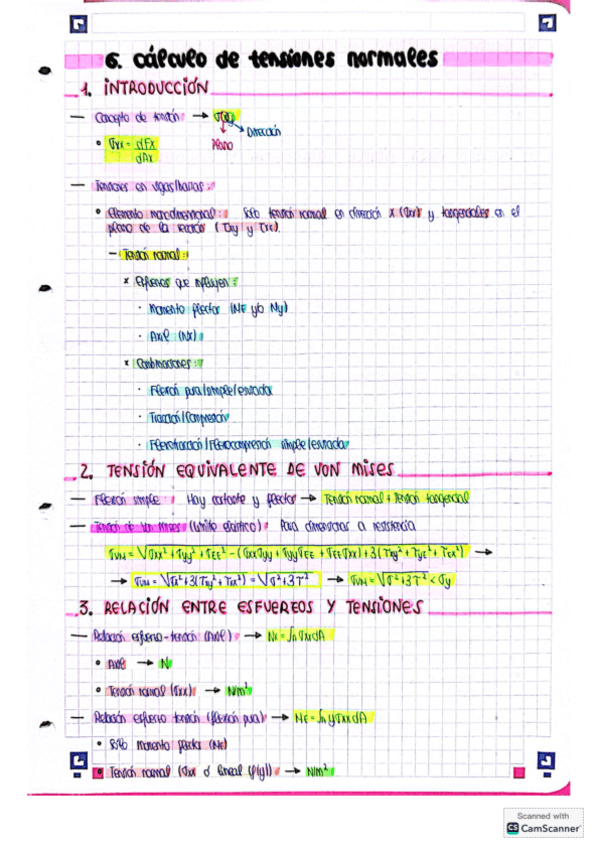 6. Cálculo de tensiones normales
1. INTRODUCCIÓN
— Concepto de tensión → σ(ij)
Dirección
Plano
• σxx = dFx/dAx
— Tensiones en vigas/barras:
• Elemento monodimensional: Sólo tensión normal en dirección x (σxx) y tangenciales en el
plano de la sección (τxy y τxz).
— Tensión normal:
x Esfuerzos que influyen:
· Momento flector (Mz y/o My)
· Axil (Nx)
x Combinaciones:
· Flexión pura/simple/esviada
· Tracción/Compresión
· Flexotracción/Flexocompresión simple/esviada
2. TENSIÓN EQUIVALENTE DE VON MISES
— Flexión simple: Hay cortante y flector → Tensión normal + Tensión tangencial
— Tensión de Von Mises (límite elástico): Para dimensionar a resistencia
σVM = √σxx² + σyy² + σzz² - (σxxσyy + σyyσzz + σzzσxx) + 3(τxy² + τyz² + τzx²) →
→ σVM = √σx² + 3(τxy² + τzx²) = √σ² + 3τ² → σVM = √σ² + 3τ² < σy
3. RELACIÓN ENTRE ESFUERZOS Y TENSIONES
— Relación esfuerzo-tensión (Axil) → Nx = ∫A σxx dA
• Axil → N
• Tensión normal (σxx) → N/m²
— Relación esfuerzo tensión (flexión pura) → Mz = ∫A y σxx dA
• Sólo momento flector (Mz)
• Tensión normal (σxx ó lineal (f(y)) → N/m²
Scanned with
CS CamScanner